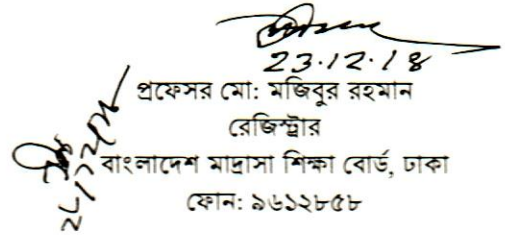 23.12.18
প্রফেসর মো: মজিবুর রহমান
রেজিস্ট্রার
বাংলাদেশ মাদ্রাসা শিক্ষা বোর্ড, ঢাকা
ফোন: ৯৬১২৮৫৮